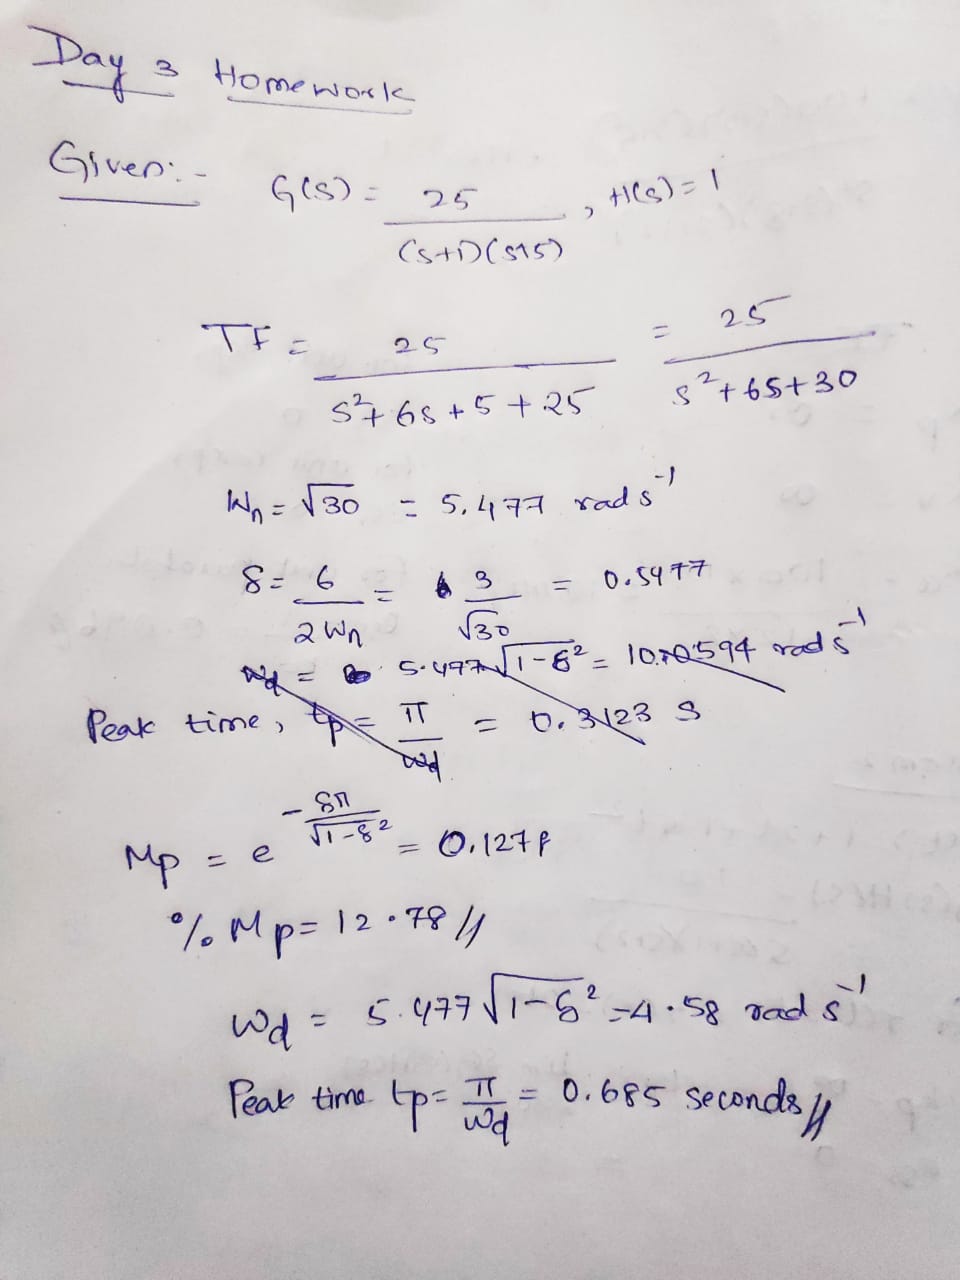 Day 3 Homework
Given:-
G(s) = 25 / (s+1)(s+5) , H(s) = 1
TF = 25 / s²+6s+5+25 = 25 / s²+6s+30
Wn = √30 = 5.477 rad s⁻¹
δ = 6 / 2Wn = 3 / √30 = 0.5477
Wd = 5.477 √1-δ² = 10.0594 rad s⁻¹
Peak time, tp = π / Wd = 0.3123 s
Mp = e^(-δπ / √1-δ²) = 0.1278
% Mp = 12.78 //
Wd = 5.477 √1-δ² = 4.58 rad s⁻¹
Peak time tp = π / Wd = 0.685 seconds //